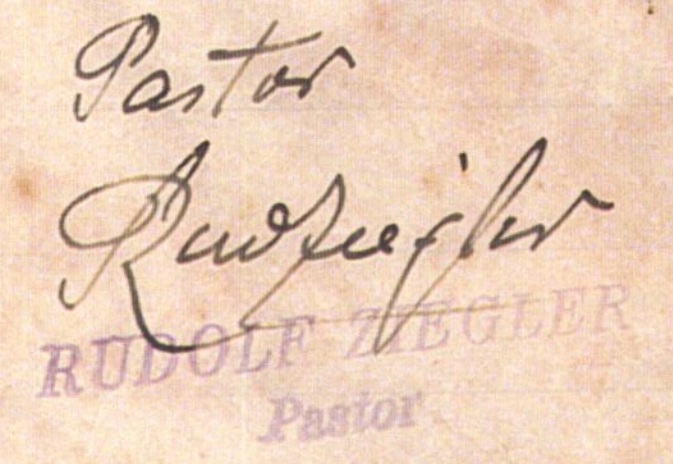 Pastor
Rud Ziegler
RUDOLF ZIEGLER
Pastor